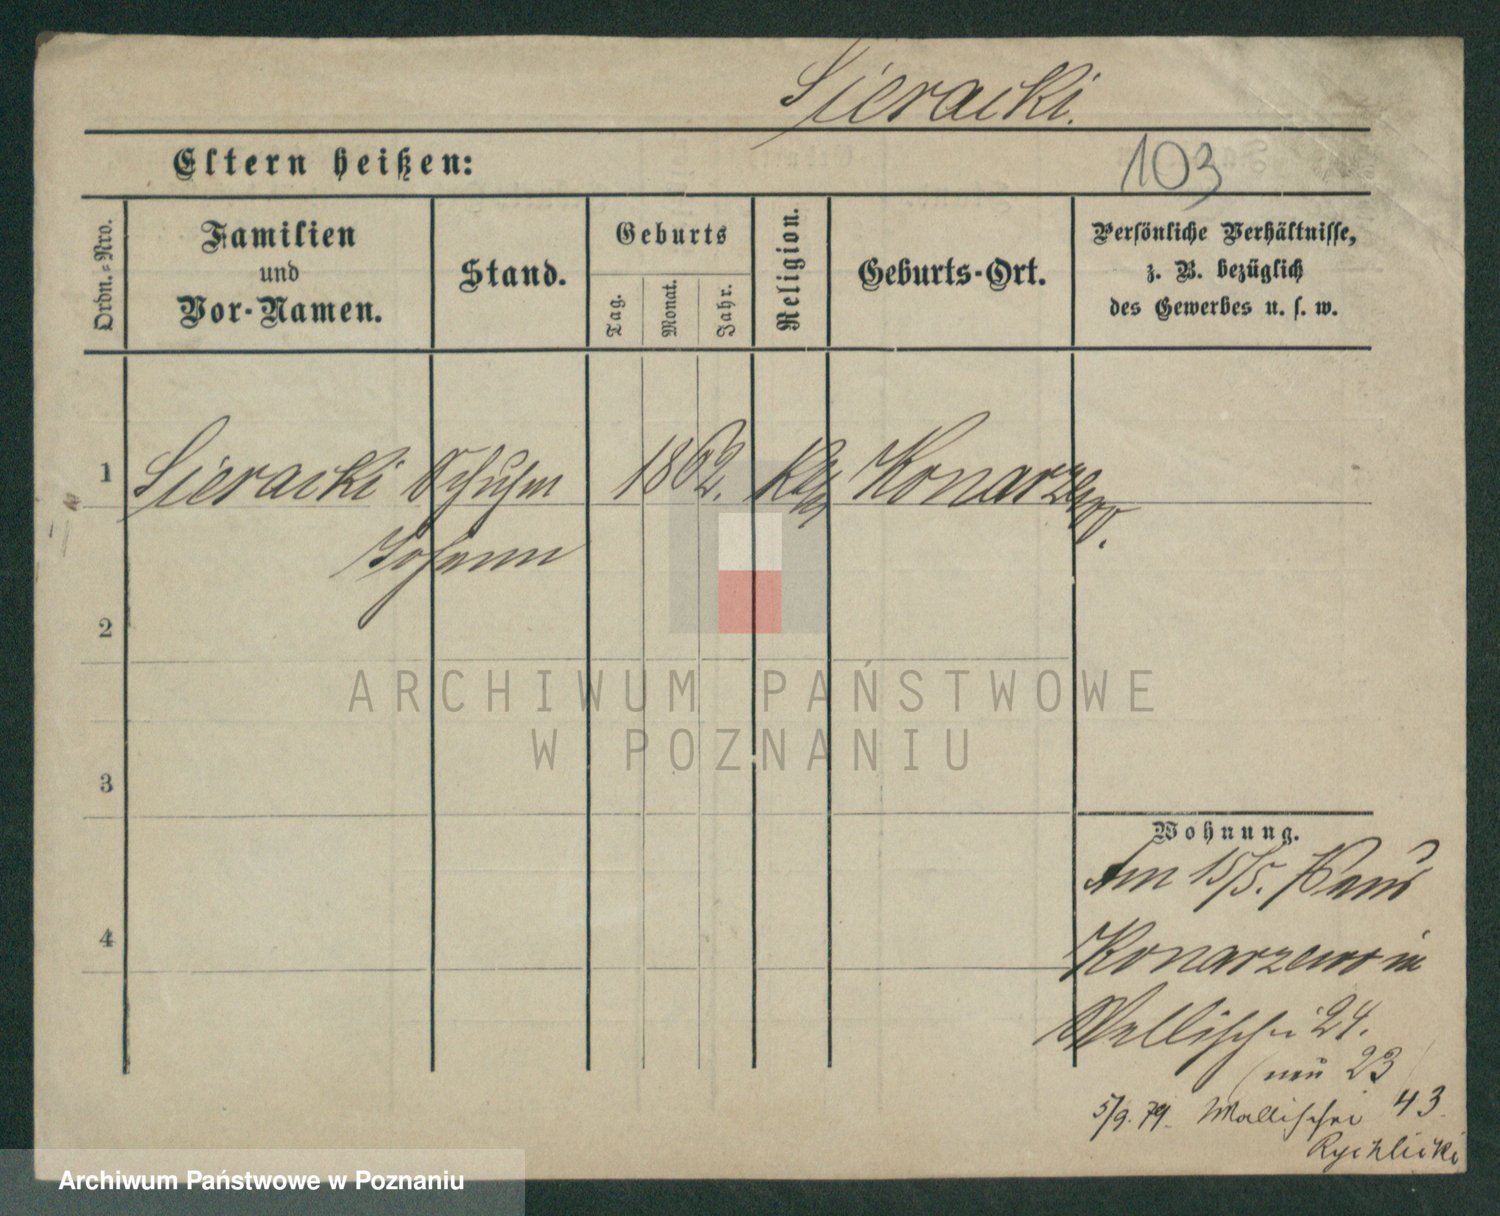 Sieracki.
Eltern heißen:
103
Ordn.=Nro.
Familien
und
Vor-Namen.
Stand.
Geburts
Tag.
Monat.
Jahr.
Religion.
Geburts-Ort.
Persönliche Verhältnisse,
z. B. bezüglich
des Gewerbes u. s. w.
1
Sieracki Schuhm 1862. Kth Konarzewo.
Johann
2
ARCHIWUM PAŃSTWOWE
W POZNANIU
3
Wohnung.
Am 15/5.
4
Konarzewo in
Wallischei 24.
(neu 23)
5/9. 79. Wallischei 43.
Rychlicki
Archiwum Państwowe w Poznaniu